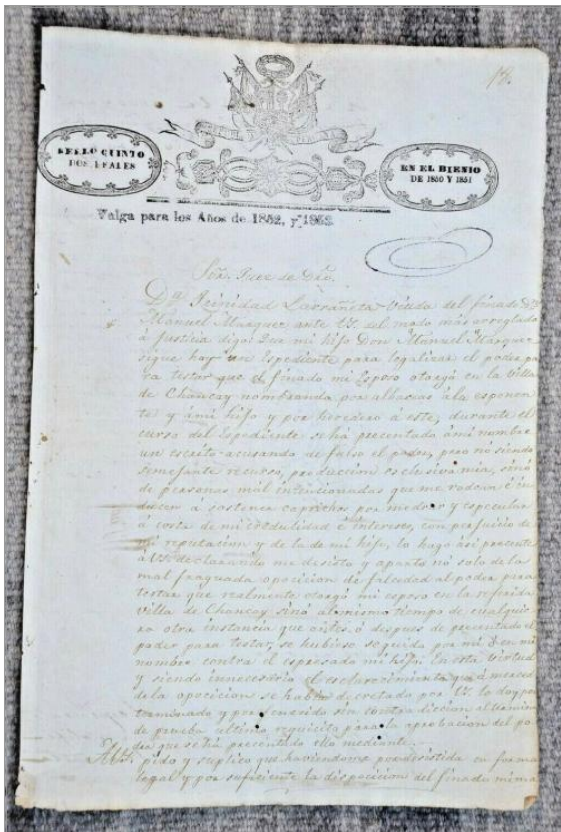 18.
SELLO QUINTO
DOS REALES
EN EL BIENIO
DE 1850 Y 1851
Valga para los Años de 1852, y 1853.
Señ. Juez de Dro.
Dª Trinidad Larrañeta Viuda del finado Dn
Manuel Marquez ante V.S. del modo mas arreglado
á justicia digo: Que mi hijo Don Manuel Marquez
sigue hay un Espediente para legalizar el poder pa
ra testar que el finado mi Esposo otorgó en la Villa
de Chancay nombrando por albaceas ala esponen
te y ámi hijo y por heredero á este, durante el
curso del Espediente se há presentado ámi nombre
un escrito acusando de falso el poder, pero nó siendo
semejante recurso, produccion esclusiva mia, sinó
de personas mal intencionadas que me rodean é in
ducen a sostener caprichos por medrar y especular
á costa de mi credulidad é intereses, con perjuicio de
mi reputacion y de la de mi hijo, lo hago asi presente
á V.S. declarando me desisto y aparto nó solo de la
mal fraguada oposicion de falsedad al poder para
testar que realmente otorgó mi esposo en la referida
villa de Chancay sinó al mismo tiempo de cualquie
ra otra instancia que antes ó despues de presentado el
poder para testar, se hubiese seguido por mi ó en mi
nombre contra el espresado mi hijo. En esta virtud
y siendo innecesario el esclarecimiento que á merced
de la oposicion se habia decretado por V.S. lo doy por
terminado y por fenecido sin contradiccion al termino
de prueba ultimo requisito para la aprobacion del po
der que está presentado ello mediante.
A V.S. pido y suplico que haviendome por desistida en forma
legal y por suficiente la disposicion del finado mi ma